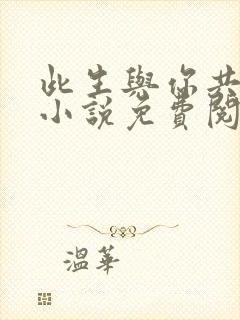 此生與你共
小說免費閱
溫華